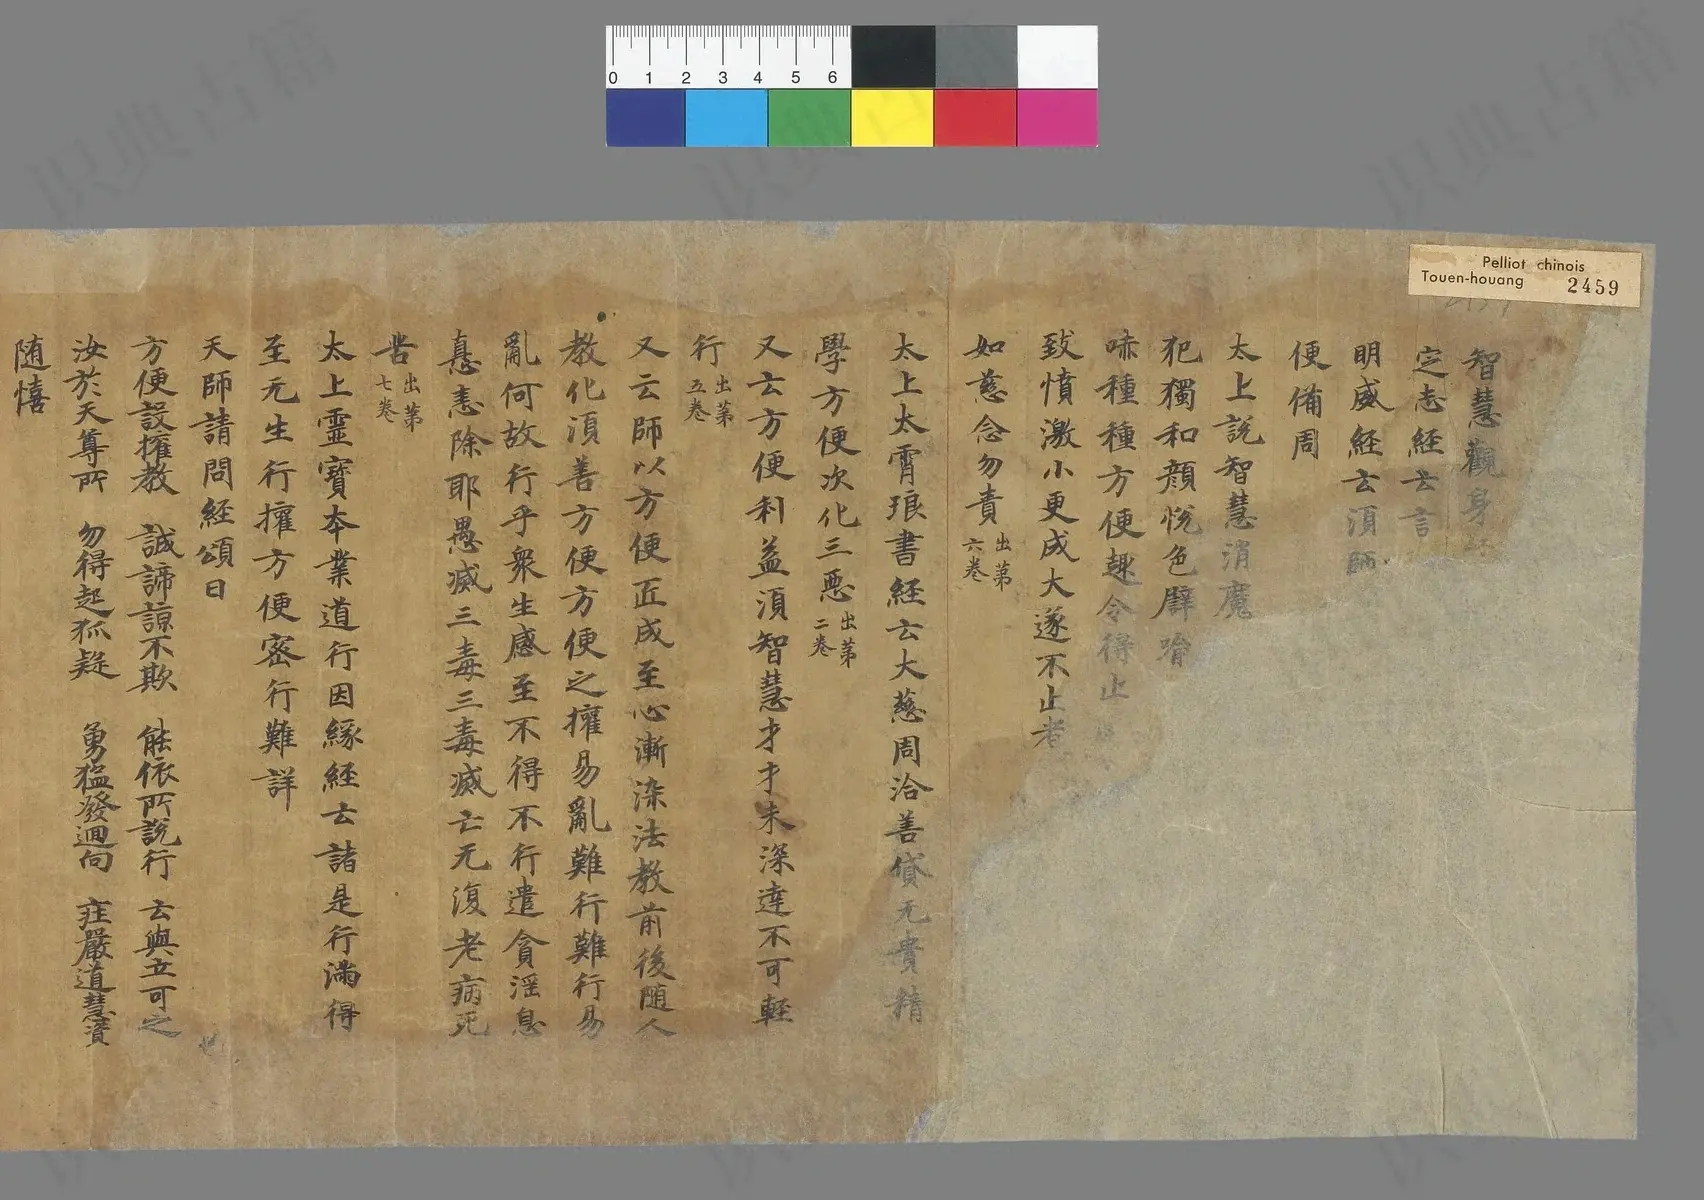 Pelliot chinois
Touen-houang 2459
0 1 2 3 4 5 6
智慧觀身經
定志經云言
明威經云湏師
便備周
太上說智慧消魔
犯獨和顔悅色譬喻
味種種方便趣令得止
致憤激小更成大遂不止者
如慈念勿責出第六卷
太上太霄琅書經云大慈周洽善貸无責精
學方便次化三惡出第二卷
又云方便利益湏智慧才才未深達不可輕
行出第五卷
又云師以方便匠成至心漸染法教前後随人
教化湏善方便方便之攉易亂難行難行易
亂何故行乎衆生感至不得不行遣貪淫息
恚除耶愚滅三毒三毒滅亡无復老病死
苦出第七卷
太上靈寶本業道行因緣經云諸是行滿得
至无生行攉方便密行難詳
天師請問經頌曰
方便設攉教 誠諦諒不欺 能依所說行 去與立可之
汝於天尊所 勿得起狐疑 勇猛發迴向 疰嚴道慧資
随憘
识典古籍
识典古籍
识典古籍